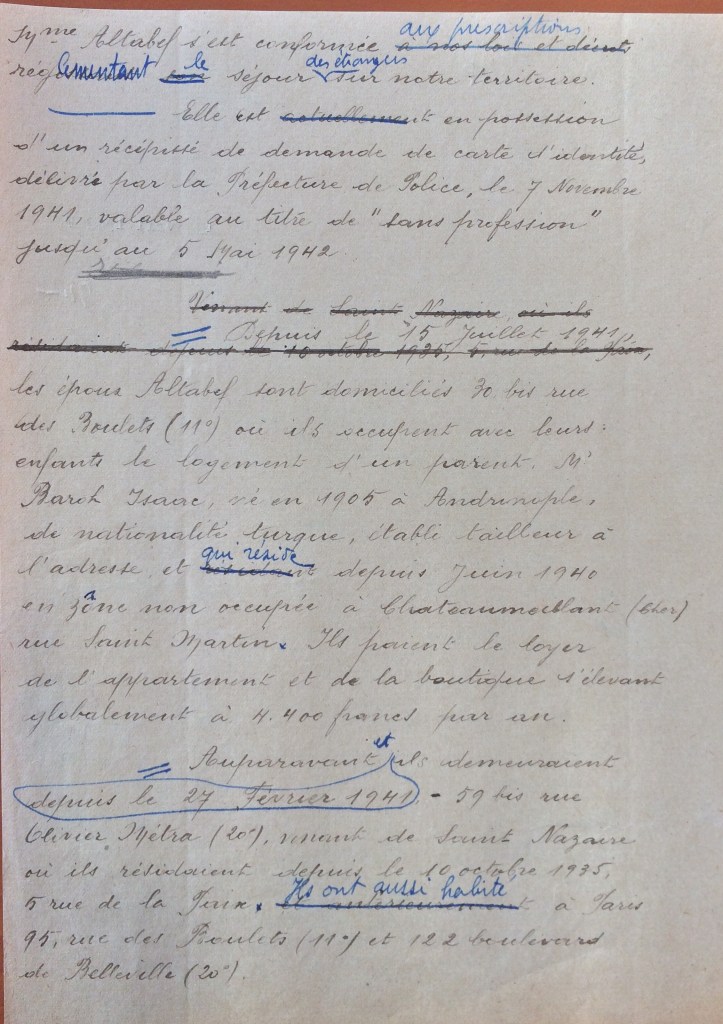 Mme Altabef s'est conformée aux prescriptions à nos lois et décrets
réglementant le séjour des étrangers sur notre territoire.
Elle est actuellement en possession
d'un récépissé de demande de carte d'identité,
délivré par la Préfecture de Police, le 7 Novembre
1941, valable au titre de "sans profession"
jusqu'au 5 Mai 1942
Venant de Saint Nazaire, où ils
Depuis le 15 Juillet 1941,
résidaient depuis le 10 octobre 1935, 5, rue de la Paix,
les époux Altabef sont domiciliés 30 bis rue
des Boulets (11°) où ils occupent avec leurs
enfants le logement d'un parent, Mr
Baroh Isaac, né en 1905 à Andrinople,
de nationalité turque, établi tailleur à
l'adresse, et qui réside résidant depuis Juin 1940
en zône non occupée à Chateaumeillant (Cher)
rue Saint Martin. Ils paient le loyer
de l'appartement et de la boutique s'élevant
globalement à 4.400 francs par an.
Auparavant et ils demeuraient
depuis le 27 Février 1941 - 59 bis rue
Olivier Métra (20°), venant de Saint Nazaire
où ils résidaient depuis le 10 octobre 1935,
5 rue de la Paix. Ils ont aussi habité et antérieurement à Paris
95, rue des Boulets (11°) et 122 boulevard
de Belleville (20°).